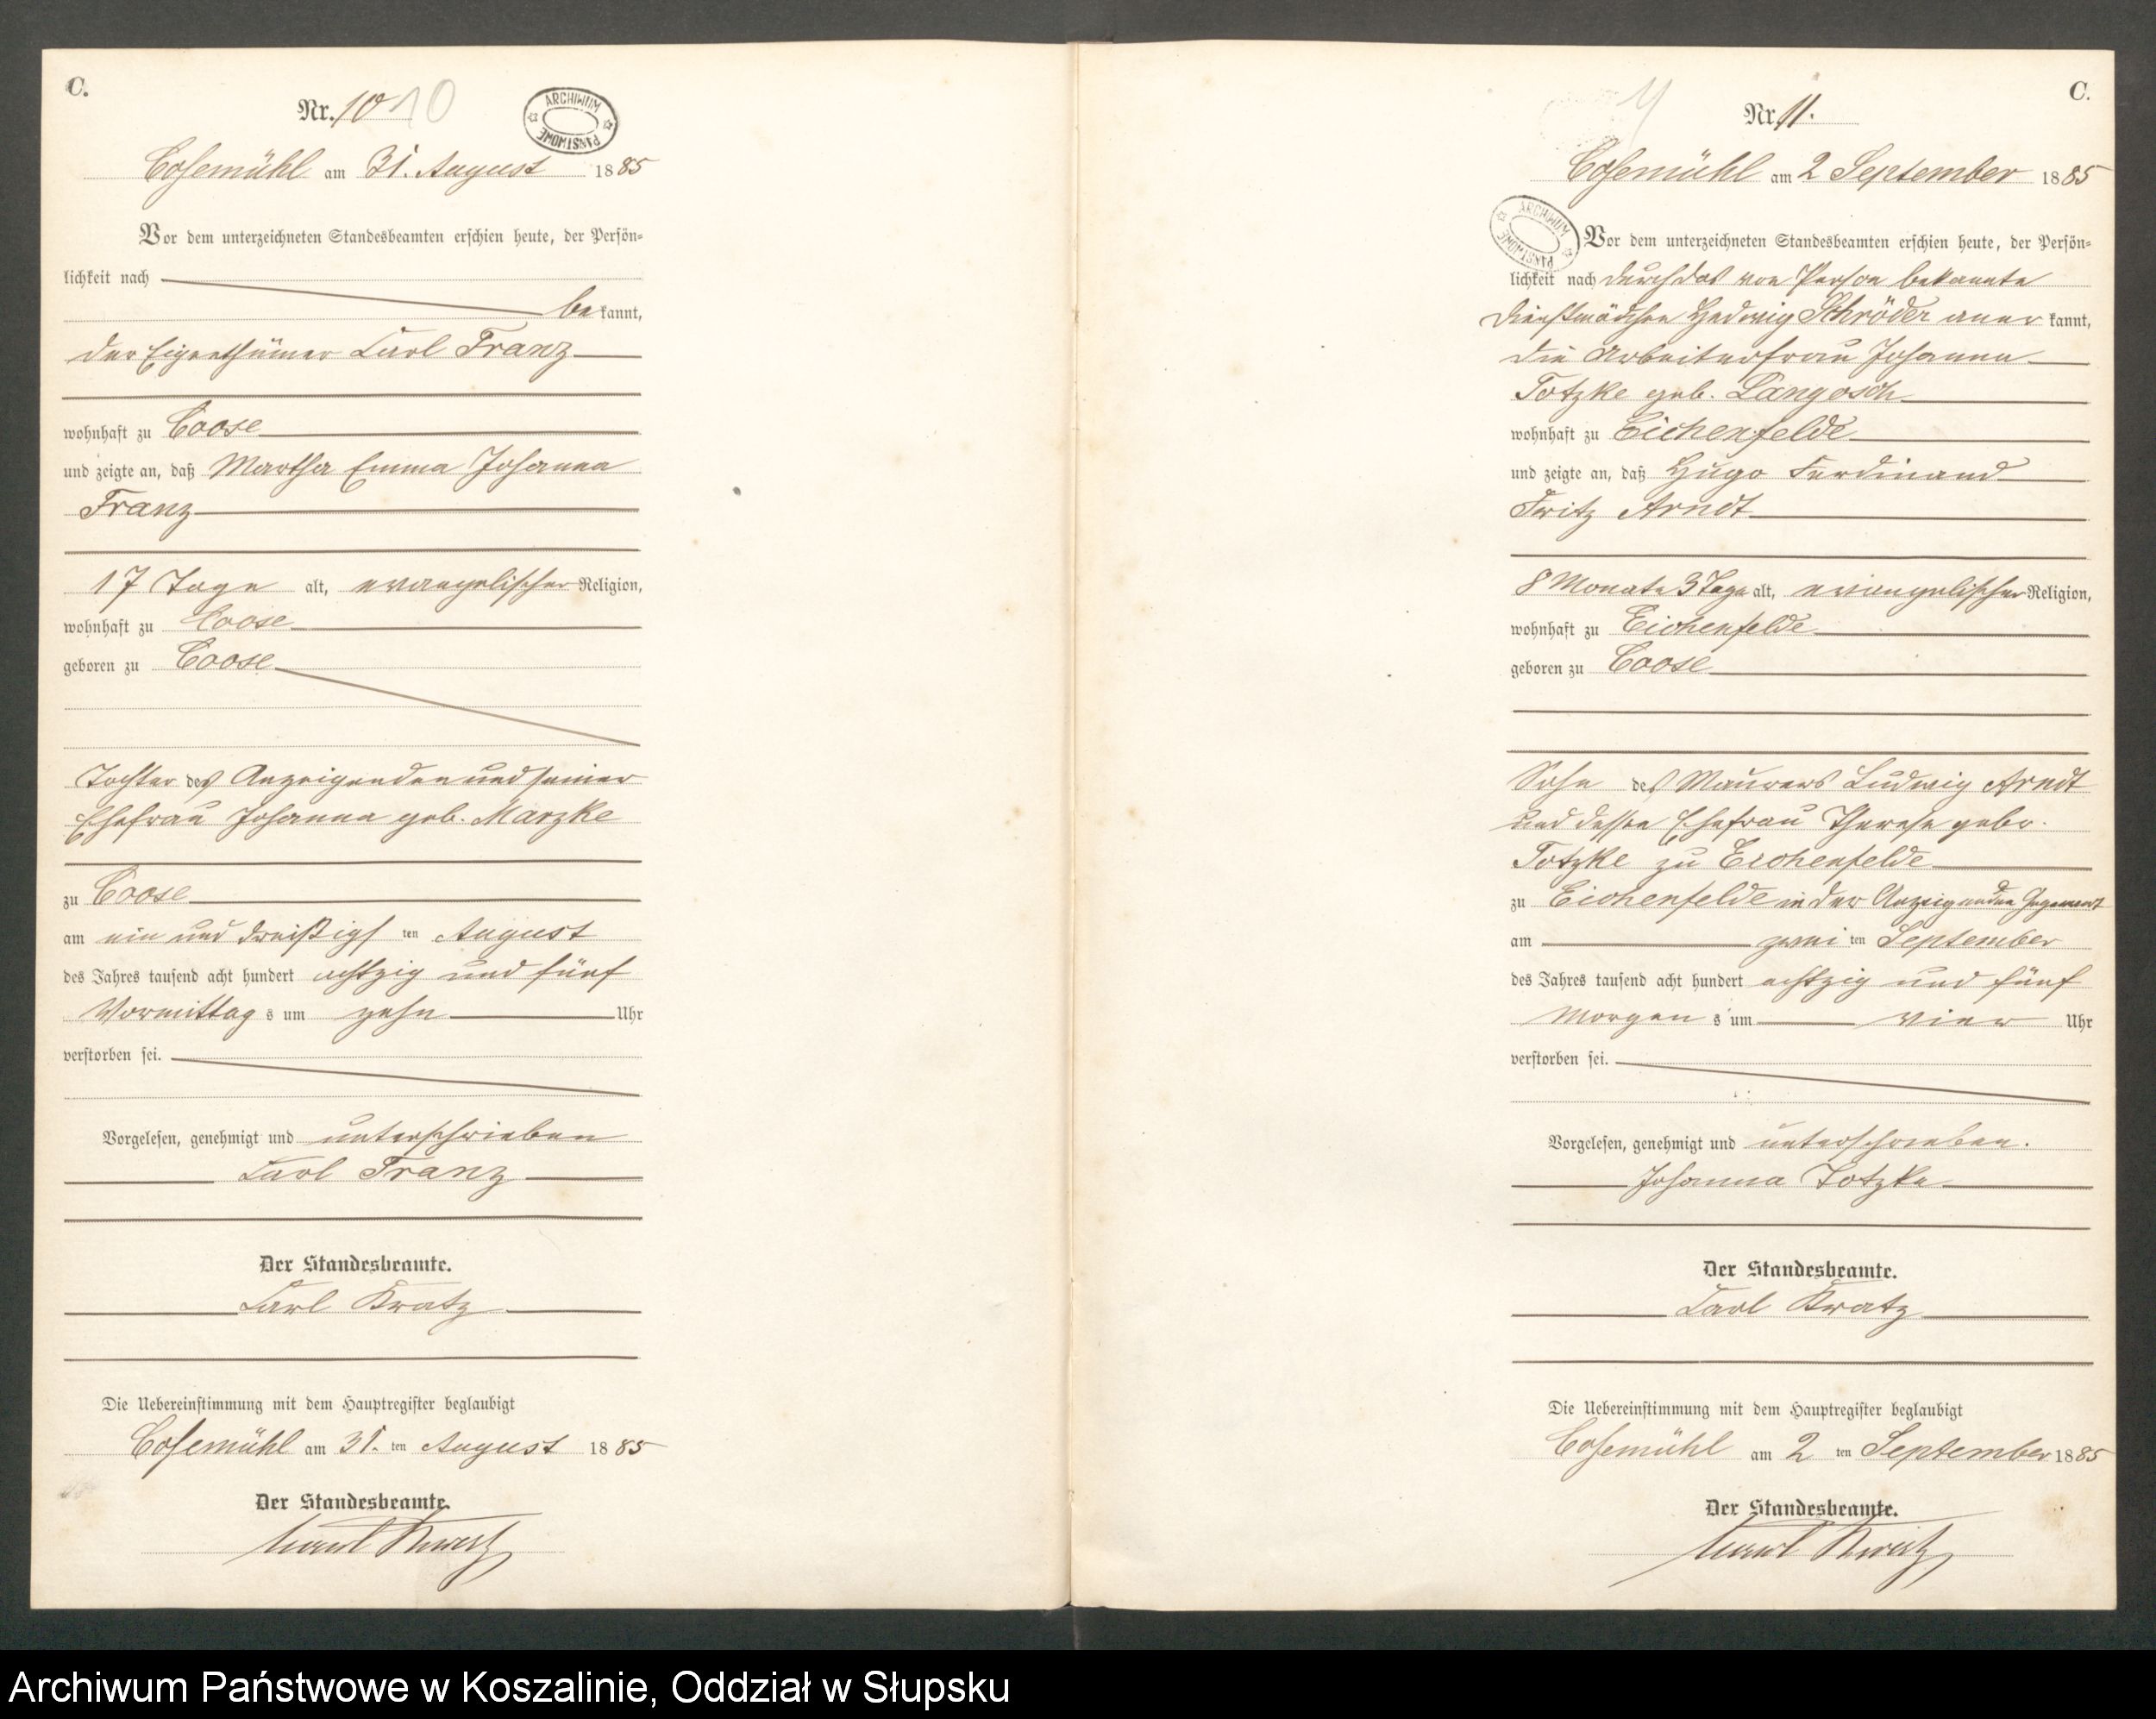 C.
Nr. 10 10
ARCHIWUM PAŃSTWOWE
Cosemühl am 31. August 1885
Vor dem unterzeichneten Standesbeamten erschien heute, der Persön=
lichkeit nach
bekannt,
der Eigenthümer Carl Franz
wohnhaft zu Coose
und zeigte an, daß Martha Emma Johanna
Franz
17 Tage alt, evangelischer Religion,
wohnhaft zu Coose
geboren zu Coose
Tochter des Anzeigenden und seiner
Ehefrau Johanna geb. Marzke
zu Coose
am ein und dreißigsten August
des Jahres tausend acht hundert achtzig und fünf
Vormittags um zehn Uhr
verstorben sei.
Vorgelesen, genehmigt und unterschrieben
Carl Franz
Der Standesbeamte.
Carl Kratz
Die Uebereinstimmung mit dem Hauptregister beglaubigt
Cosemühl am 31. ten August 1885
Der Standesbeamte.
Carl Kratz
C.
Nr. 11.
Cosemühl am 2 September 1885
ARCHIWUM PAŃSTWOWE
Vor dem unterzeichneten Standesbeamten erschien heute, der Persön=
lichkeit nach durch das von Person bekannte
Dienstmädchen Hedwig Schröder anerkannt,
die Arbeiterfrau Johanna
Totzke geb. Langosch
wohnhaft zu Eichenfelde
und zeigte an, daß Hugo Ferdinand
Fritz Arndt
8 Monate 3 Tage alt, evangelischer Religion,
wohnhaft zu Eichenfelde
geboren zu Coose
Sohn des Maurers Ludwig Arndt
und dessen Ehefrau Therese gebr.
Totzke zu Eichenfelde
zu Eichenfelde in der Anzeigenden Gegenwart
am zweiten September
des Jahres tausend acht hundert achtzig und fünf
Morgens um vier Uhr
verstorben sei.
Vorgelesen, genehmigt und unterschrieben.
Johanna Totzke
Der Standesbeamte.
Carl Kratz
Die Uebereinstimmung mit dem Hauptregister beglaubigt
Cosemühl am 2 ten September 1885
Der Standesbeamte.
Carl Kratz
Archiwum Państwowe w Koszalinie, Oddział w Słupsku